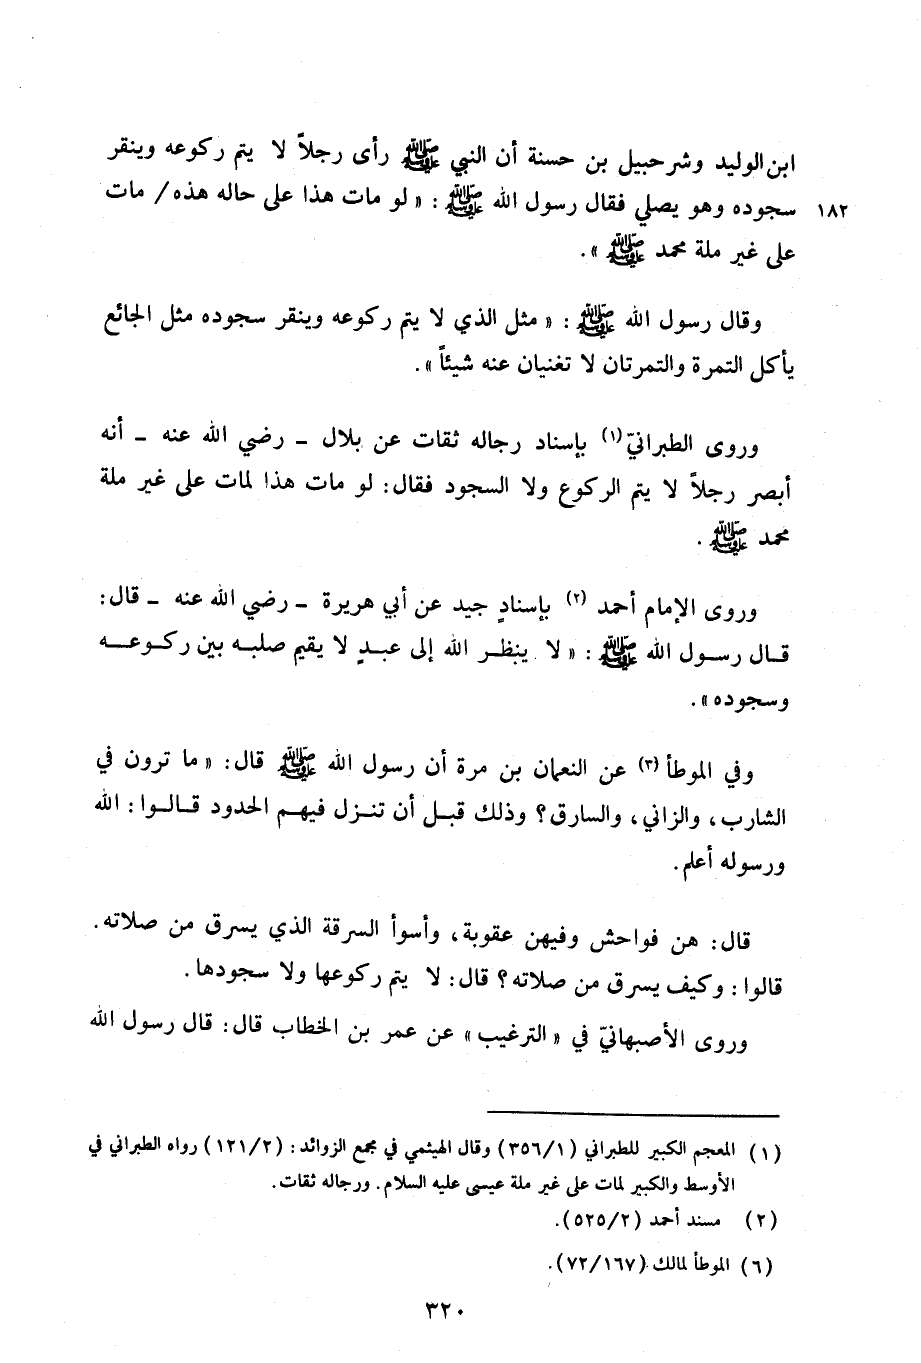 ابن الوليد وشرحبيل بن حسنة أن النبي ﷺ رأى رجلاً لا يتم ركوعه وينقر
١٨٢ سجوده وهو يصلي فقال رسول الله ﷺ : « لو مات هذا على حاله هذه/ مات
على غير ملة محمد ﷺ ».
وقال رسول الله ﷺ : « مثل الذي لا يتم ركوعه وينقر سجوده مثل الجائع
يأكل التمرة والتمرتان لا تغنيان عنه شيئاً ».
وروى الطبرانيّ (١) بإسناد رجاله ثقات عن بلال - رضي الله عنه - أنه
أبصر رجلاً لا يتم الركوع ولا السجود فقال: لو مات هذا لمات على غير ملة
محمد ﷺ .
وروى الإمام أحمد (٢) بإسنادٍ جيد عن أبي هريرة - رضي الله عنه - قال:
قال رسول الله ﷺ : « لا ينظر الله إلى عبدٍ لا يقيم صلبه بين ركوعه
وسجوده ».
وفي الموطأ (٣) عن النعمان بن مرة أن رسول الله ﷺ قال: « ما ترون في
الشارب، والزاني، والسارق؟ وذلك قبل أن تنزل فيهم الحدود قالوا: الله
ورسوله أعلم.
قال: هن فواحش وفيهن عقوبة، وأسوأ السرقة الذي يسرق من صلاته.
قالوا: وكيف يسرق من صلاته؟ قال: لا يتم ركوعها ولا سجودها.
وروى الأصبهانيّ في « الترغيب » عن عمر بن الخطاب قال: قال رسول الله
(١) المعجم الكبير للطبراني (٣٥٦/١) وقال الهيثمي في مجمع الزوائد: (١٢١/٢) رواه الطبراني في
الأوسط والكبير لمات على غير ملة عيسى عليه السلام. ورجاله ثقات.
(٢) مسند أحمد (٥٢٥/٢).
(٦) الموطأ لمالك (٧٢/١٦٧).
٣٢٠